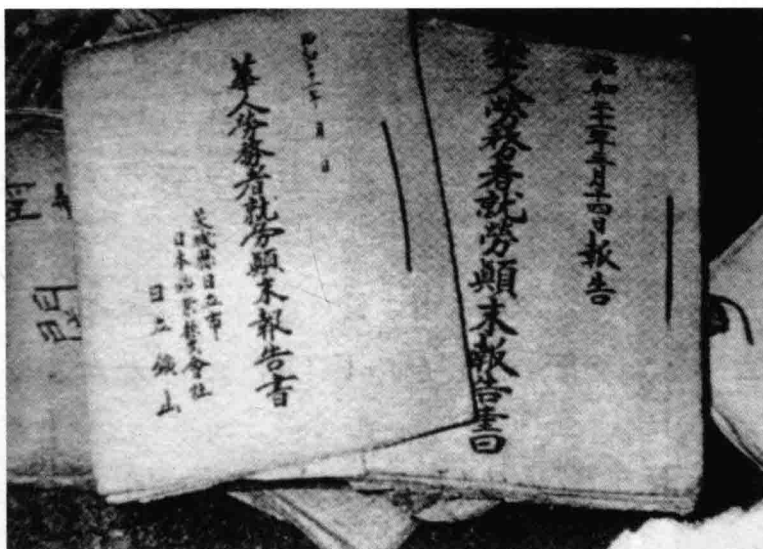 昭和二十一年三月十四日報告
華人勞務者就勞顛末報告書
昭和二十一年 月 日
華人勞務者就勞顛末報告書
茨城縣日立市
日本鑛業株式會社
日立鑛山